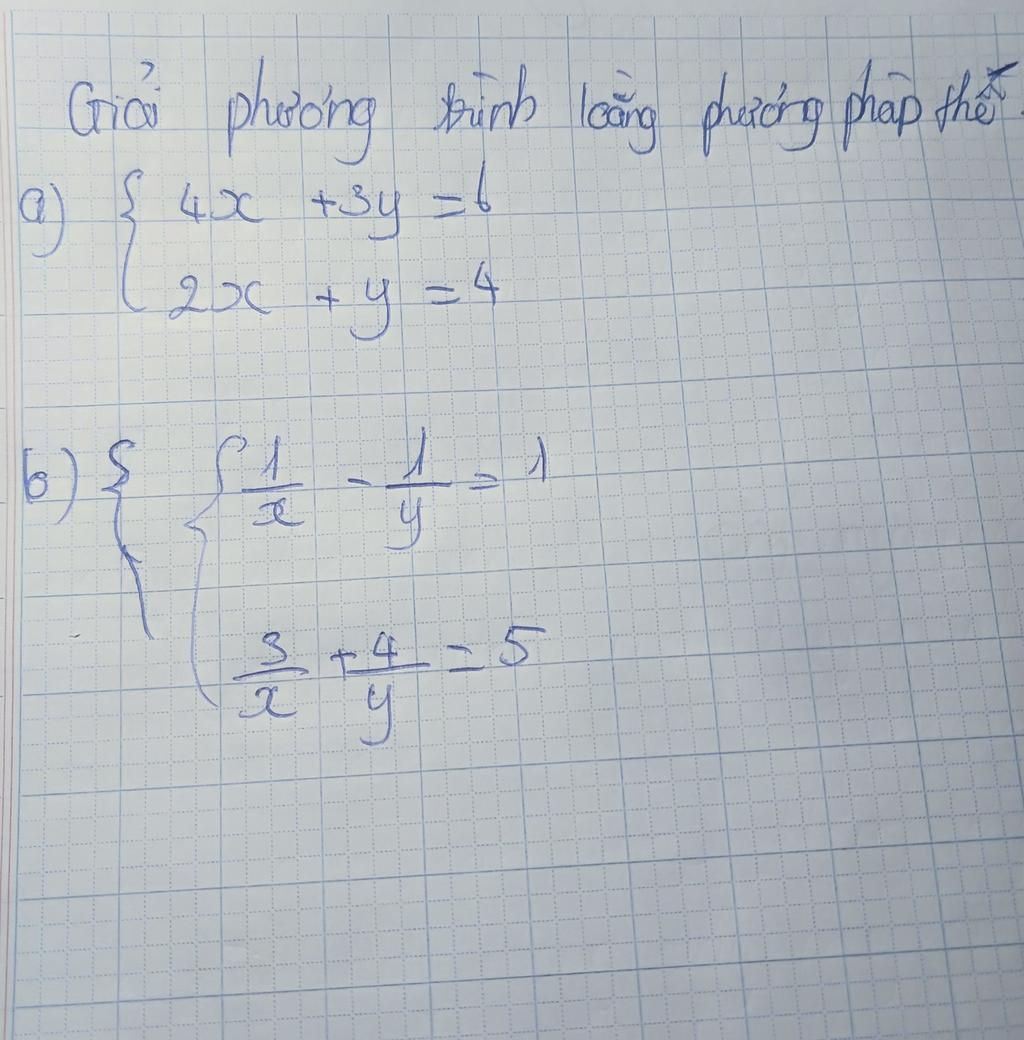 Giải phương trình bằng phương pháp thế.
a) { 4x + 3y = 6
2x + y = 4
b) { { 1/x - 1/y = 1
3/x + 4/y = 5